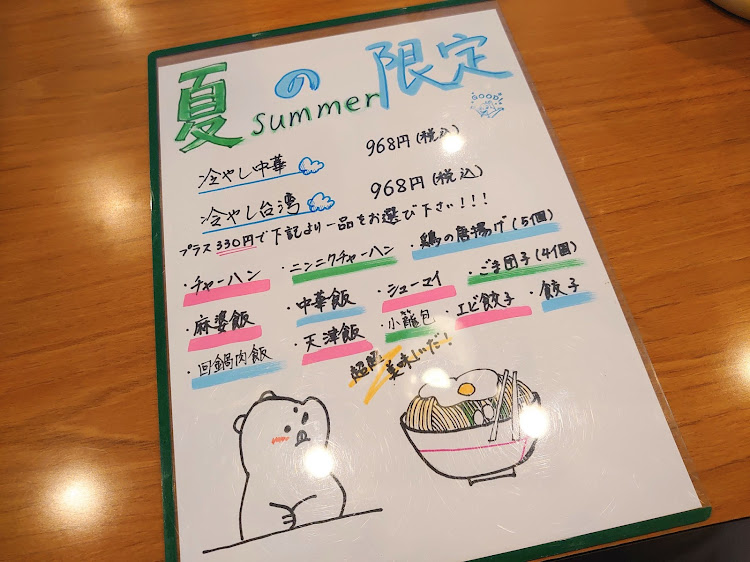 夏の限定
summer
GOOD!
冷やし中華 968円(税込)
冷やし台湾 968円(税込)
プラス330円で下記より一品をお選び下さい!!!
・チャーハン ・ニンニクチャーハン ・鶏の唐揚げ(5個)
・麻婆飯 ・中華飯 ・シューマイ ・ごま団子(4個)
・回鍋肉飯 ・天津飯 ・小籠包 ・エビ餃子 ・餃子
美味いだ!